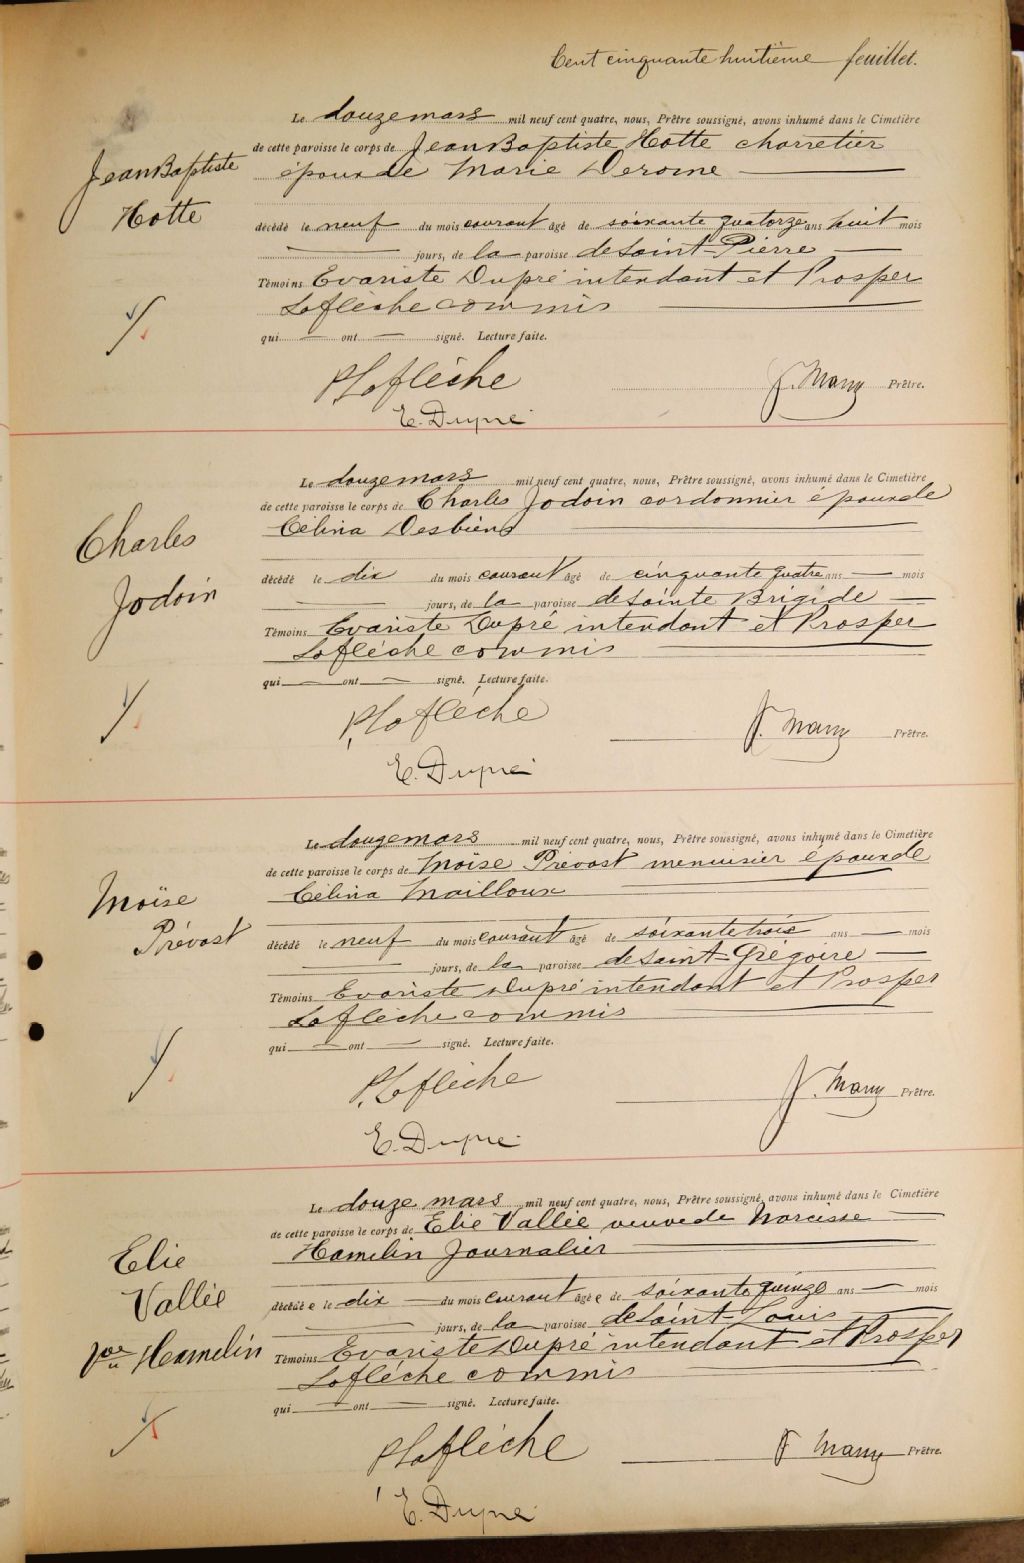 Cent cinquante huitième feuillet.
Jean Baptiste
Hotte
Le douze mars mil neuf cent quatre, nous, Prêtre soussigné, avons inhumé dans le Cimetière
de cette paroisse le corps de Jean Baptiste Hotte charretier
époux de Marie Derome
décédé le neuf du mois courant âgé de soixante quatorze ans huit mois
jours, de la paroisse de Saint-Pierre
Témoins Evariste Dupré intendant et Prosper
Laflèche commis
qui ont signé. Lecture faite.
P. Laflèche
Prêtre.
E. Dupré
Charles
Jodoin
Le douze mars mil neuf cent quatre, nous, Prêtre soussigné, avons inhumé dans le Cimetière
de cette paroisse le corps de Charles Jodoin cordonnier époux de
Célina Desbiens
décédé le dix du mois courant âgé de cinquante quatre ans mois
jours, de la paroisse de Sainte Brigide
Témoins Evariste Dupré intendant et Prosper
Laflèche commis
qui ont signé. Lecture faite.
P. Laflèche
Prêtre.
E. Dupré
Moïse
Prévost
Le douze mars mil neuf cent quatre, nous, Prêtre soussigné, avons inhumé dans le Cimetière
de cette paroisse le corps de Moïse Prévost menuisier époux de
Célina Mailloux
décédé le neuf du mois courant âgé de soixante trois ans mois
jours, de la paroisse de Saint-Grégoire
Témoins Evariste Dupré intendant et Prosper
Laflèche commis
qui ont signé. Lecture faite.
P. Laflèche
Prêtre.
E. Dupré
Elie
Vallée
Hamelin
Le douze mars mil neuf cent quatre, nous, Prêtre soussigné, avons inhumé dans le Cimetière
de cette paroisse le corps de Elie Vallée veuve de Narcisse
Hamelin Journalier
décédée le dix du mois courant âgée de soixante quinze ans mois
jours, de la paroisse de Saint-Louis
Témoins Evariste Dupré intendant et Prosper
Laflèche commis
qui ont signé. Lecture faite.
P Laflèche
Prêtre.
E. Dupré